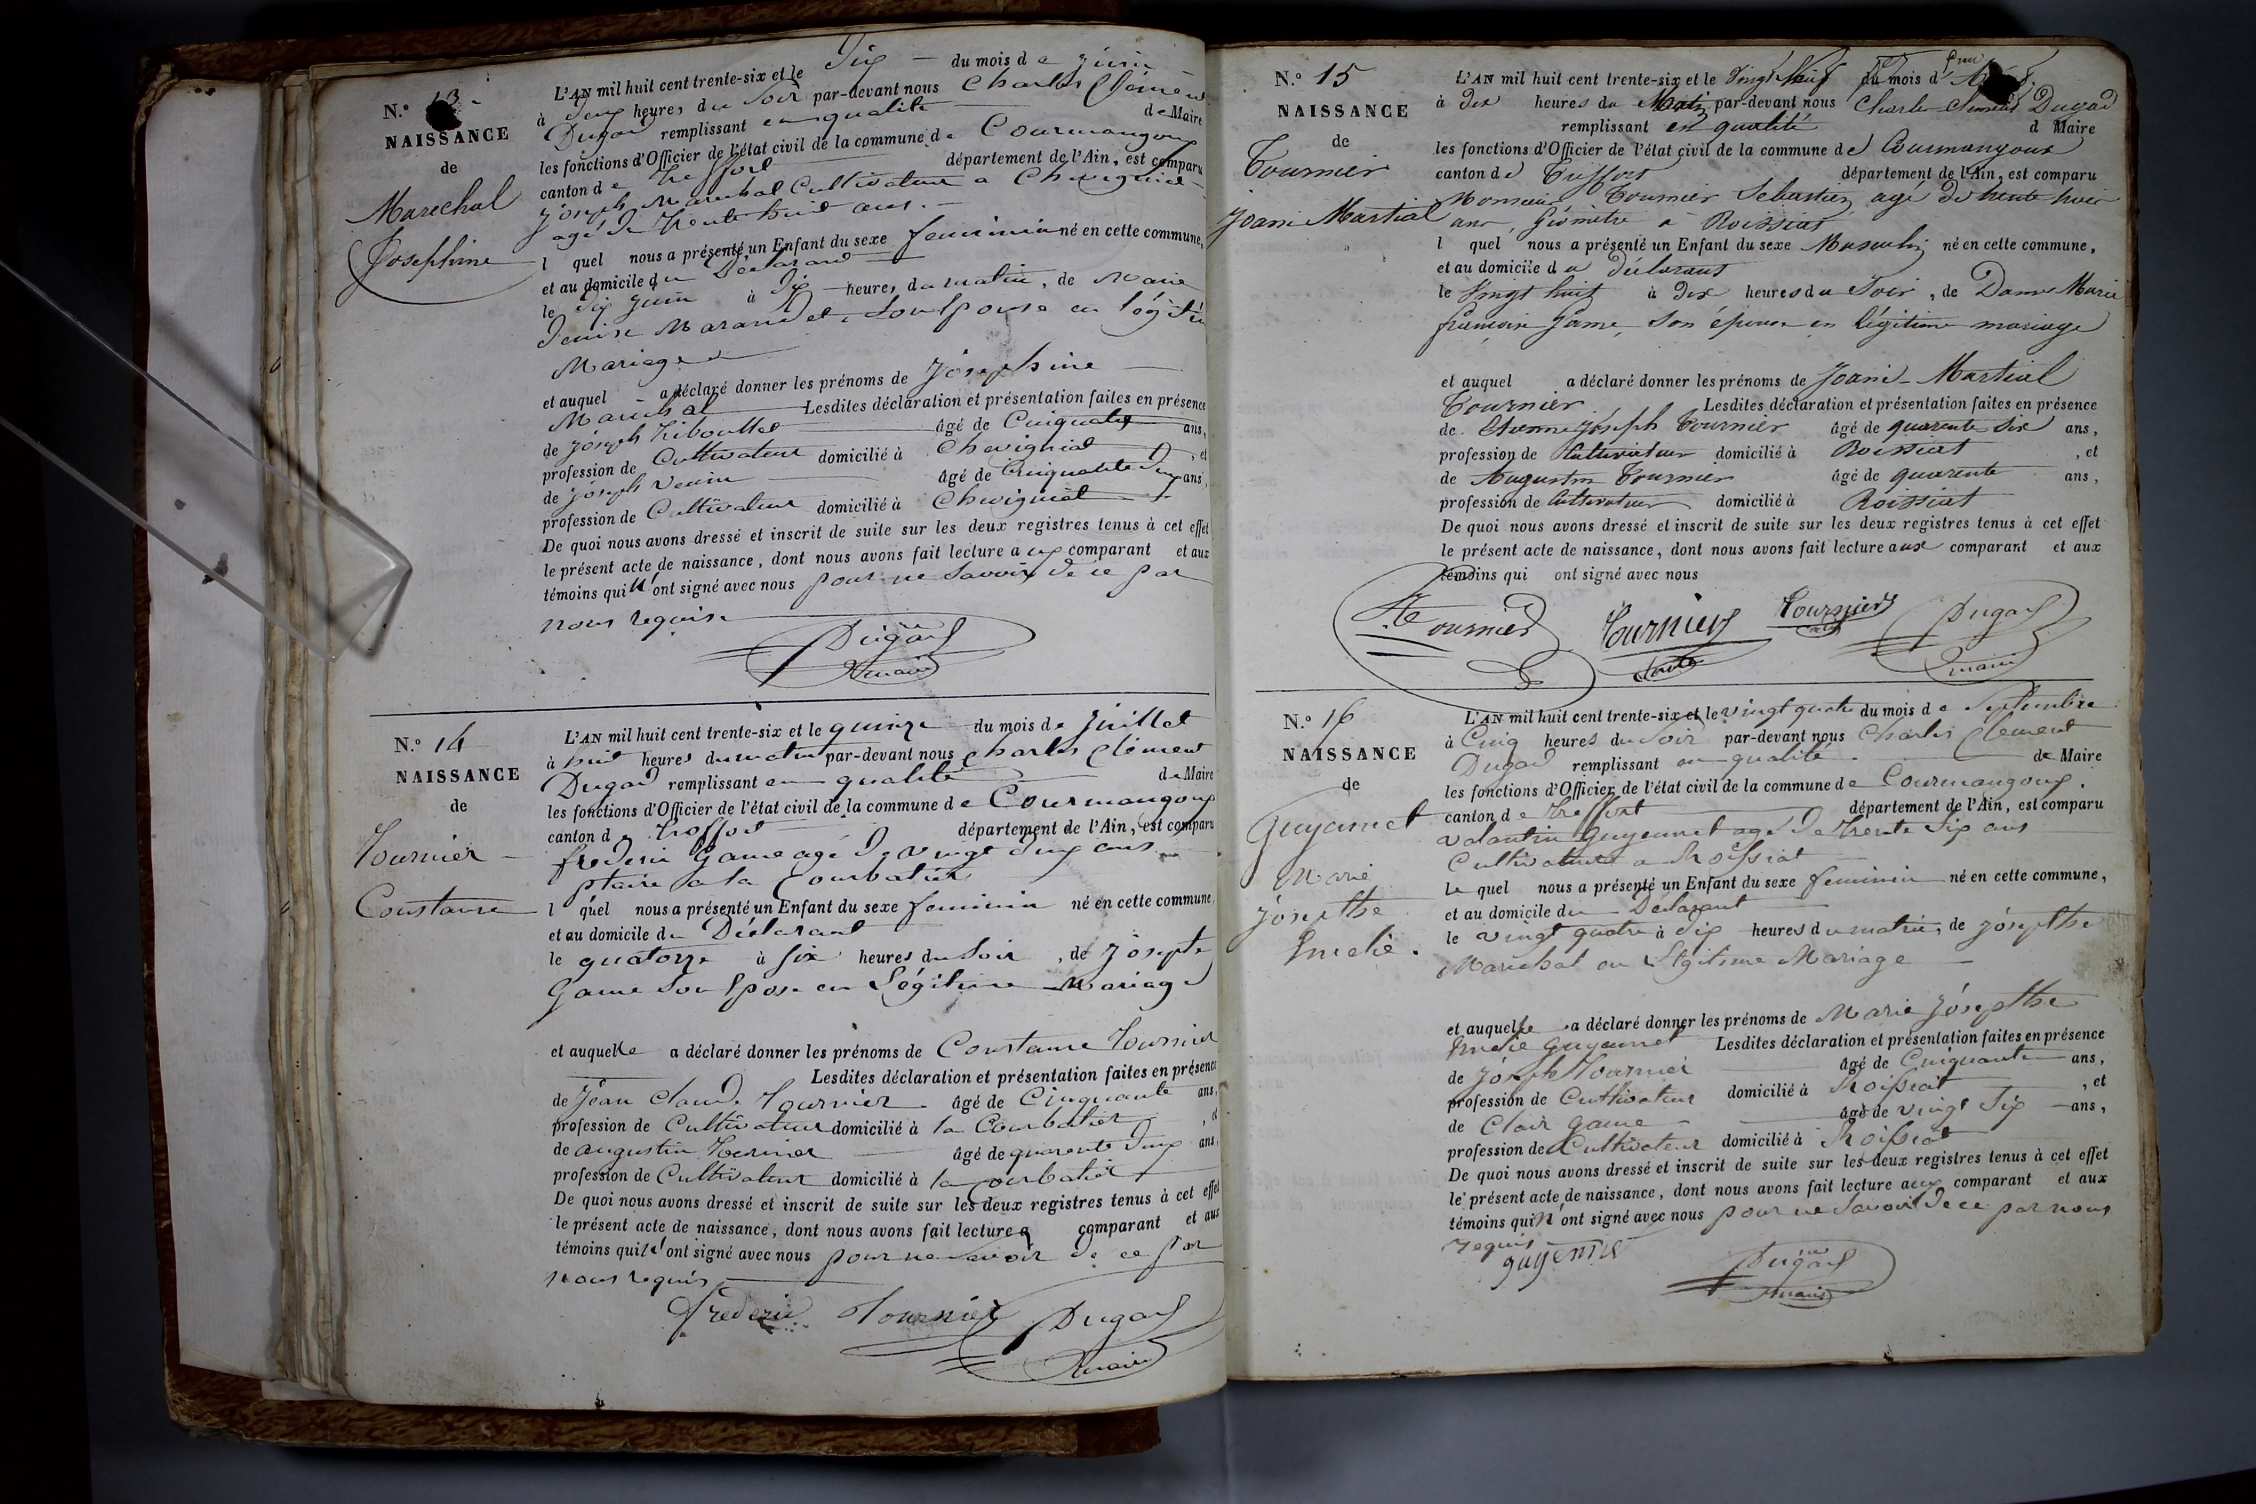 N.o 13
NAISSANCE
de
Marechal
Josephine
L'AN mil huit cent trente-six et le Dix du mois de Juin
à deux heures du Soir par-devant nous Charles Clément
Dugad remplissant en qualité de Maire
les fonctions d'Officier de l'état civil de la commune de Courmangoux
canton de treffort département de l'Ain, est comparu
Joseph Marechal Cultivateur a Chevignat
agé de trente huit ans.
l quel nous a présenté un Enfant du sexe feminin né en cette commune,
et au domicile du Déclarant
le dix Juin à dix heures du matin, de Marie
Denise Marandet, Son Epouse en légitime
Mariage
et auquel a déclaré donner les prénoms de Joséphine
Marechal Lesdites déclaration et présentation faites en présence
de Joseph âgé de Cinquante ans,
profession de Cultivateur domicilié à Chevigniat, et
de Joseph âgé de Cinquante deux ans,
profession de Cultivateur domicilié à Chevigniat
De quoi nous avons dressé et inscrit de suite sur les deux registres tenus à cet effet
le présent acte de naissance, dont nous avons fait lecture aux comparant et aux
témoins qui n'ont signé avec nous pour ne Savoir de ce par
nous requis
Dugad
maire
N.o 14
NAISSANCE
de
Tournier
Constance
L'AN mil huit cent trente-six et le quinze du mois de Juillet
à huit heures du matin par-devant nous Charles Clément
Dugad remplissant en qualité de Maire
les fonctions d'Officier de l'état civil de la commune de Courmangoux
canton de treffort département de l'Ain, est comparu
frederic Game agé de vingt deux ans
ptaire a la Courbatière
l quel nous a présenté un Enfant du sexe feminin né en cette commune,
et au domicile du Déclarant
le quatorze à six heures du Soir, de Josepte
Game Son Epose en Légitime Mariage
et auquelle a déclaré donner les prénoms de Constance Tournier
Lesdites déclaration et présentation faites en présence
de Jean Claude Tournier âgé de Cinquante ans,
profession de Cultivateur domicilié à la Courbatier, et
de augustin Tournier âgé de quarente deux ans,
profession de Cultivateur domicilié à la Courbatier
De quoi nous avons dressé et inscrit de suite sur les deux registres tenus à cet effet
le présent acte de naissance, dont nous avons fait lecture a comparant et aux
témoins qui n'ont signé avec nous pour ne savoir de ce par
nous requis
frederic Tournier Dugad
maire
N.o 15
NAISSANCE
de
Tournier
Joani Martial
L'AN mil huit cent trente-six et le Vingt Neuf du mois d
à Dix heures du Matin par-devant nous Charle Clement Dugad
remplissant en qualité d Maire
les fonctions d'Officier de l'état civil de la commune de Courmangoux
canton de Treffort département de l'Ain, est comparu
Monsieur Tournier Sebastien agé de trente huit
ans Géomètre à Roissiat
l quel nous a présenté un Enfant du sexe Masculin né en cette commune,
et au domicile du déclarant
le Vingt huit à Dix heures du Soir, de Dame Marie
françoise Jame, Son épouse en légitime mariage
et auquel a déclaré donner les prénoms de Joani-Martial
Tournier Lesdites déclaration et présentation faites en présence
de Etienne Joseph Tournier âgé de quarente six ans,
profession de Cultivateur domicilié à Roissiat, et
de Augustin Tournier âgé de quarente ans,
profession de Cultivateur domicilié à Roissiat
De quoi nous avons dressé et inscrit de suite sur les deux registres tenus à cet effet
le présent acte de naissance, dont nous avons fait lecture aux comparant et aux
témoins qui ont signé avec nous
Tournier Tournier Tournier Dugad
maire
N.o 16
NAISSANCE
de
Guyennet
Marie
Jósepthe
Emelie.
L'AN mil huit cent trente-six et le vingt quatre du mois de Septembre
à Cinq heures du Soir par-devant nous Charles Clement
Dugad remplissant en qualité de Maire
les fonctions d'Officier de l'état civil de la commune de Courmangoux
canton de treffort département de l'Ain, est comparu
Valantin Guyennet agé de trente six ans
Cultivateur a Roissiat
Le quel nous a présenté un Enfant du sexe feminin né en cette commune,
et au domicile du Déclarant
le vingt quatre à dix heures du matin, de Jósepthe
Marechal en Légitime Mariage
et auquelle a déclaré donner les prénoms de Marie Jósepthe
Emelie Guyennet Lesdites déclaration et présentation faites en présence
de Joseph Tournier âgé de Cinquante ans,
profession de Cultivateur domicilié à Roissiat, et
de Clair Game âgé de vingt six ans,
profession de Cultivateur domicilié à Roissiat
De quoi nous avons dressé et inscrit de suite sur les deux registres tenus à cet effet
le présent acte de naissance, dont nous avons fait lecture aux comparant et aux
témoins qui n'ont signé avec nous pour ne Savoir de ce par nous
requis
Dugad
maire